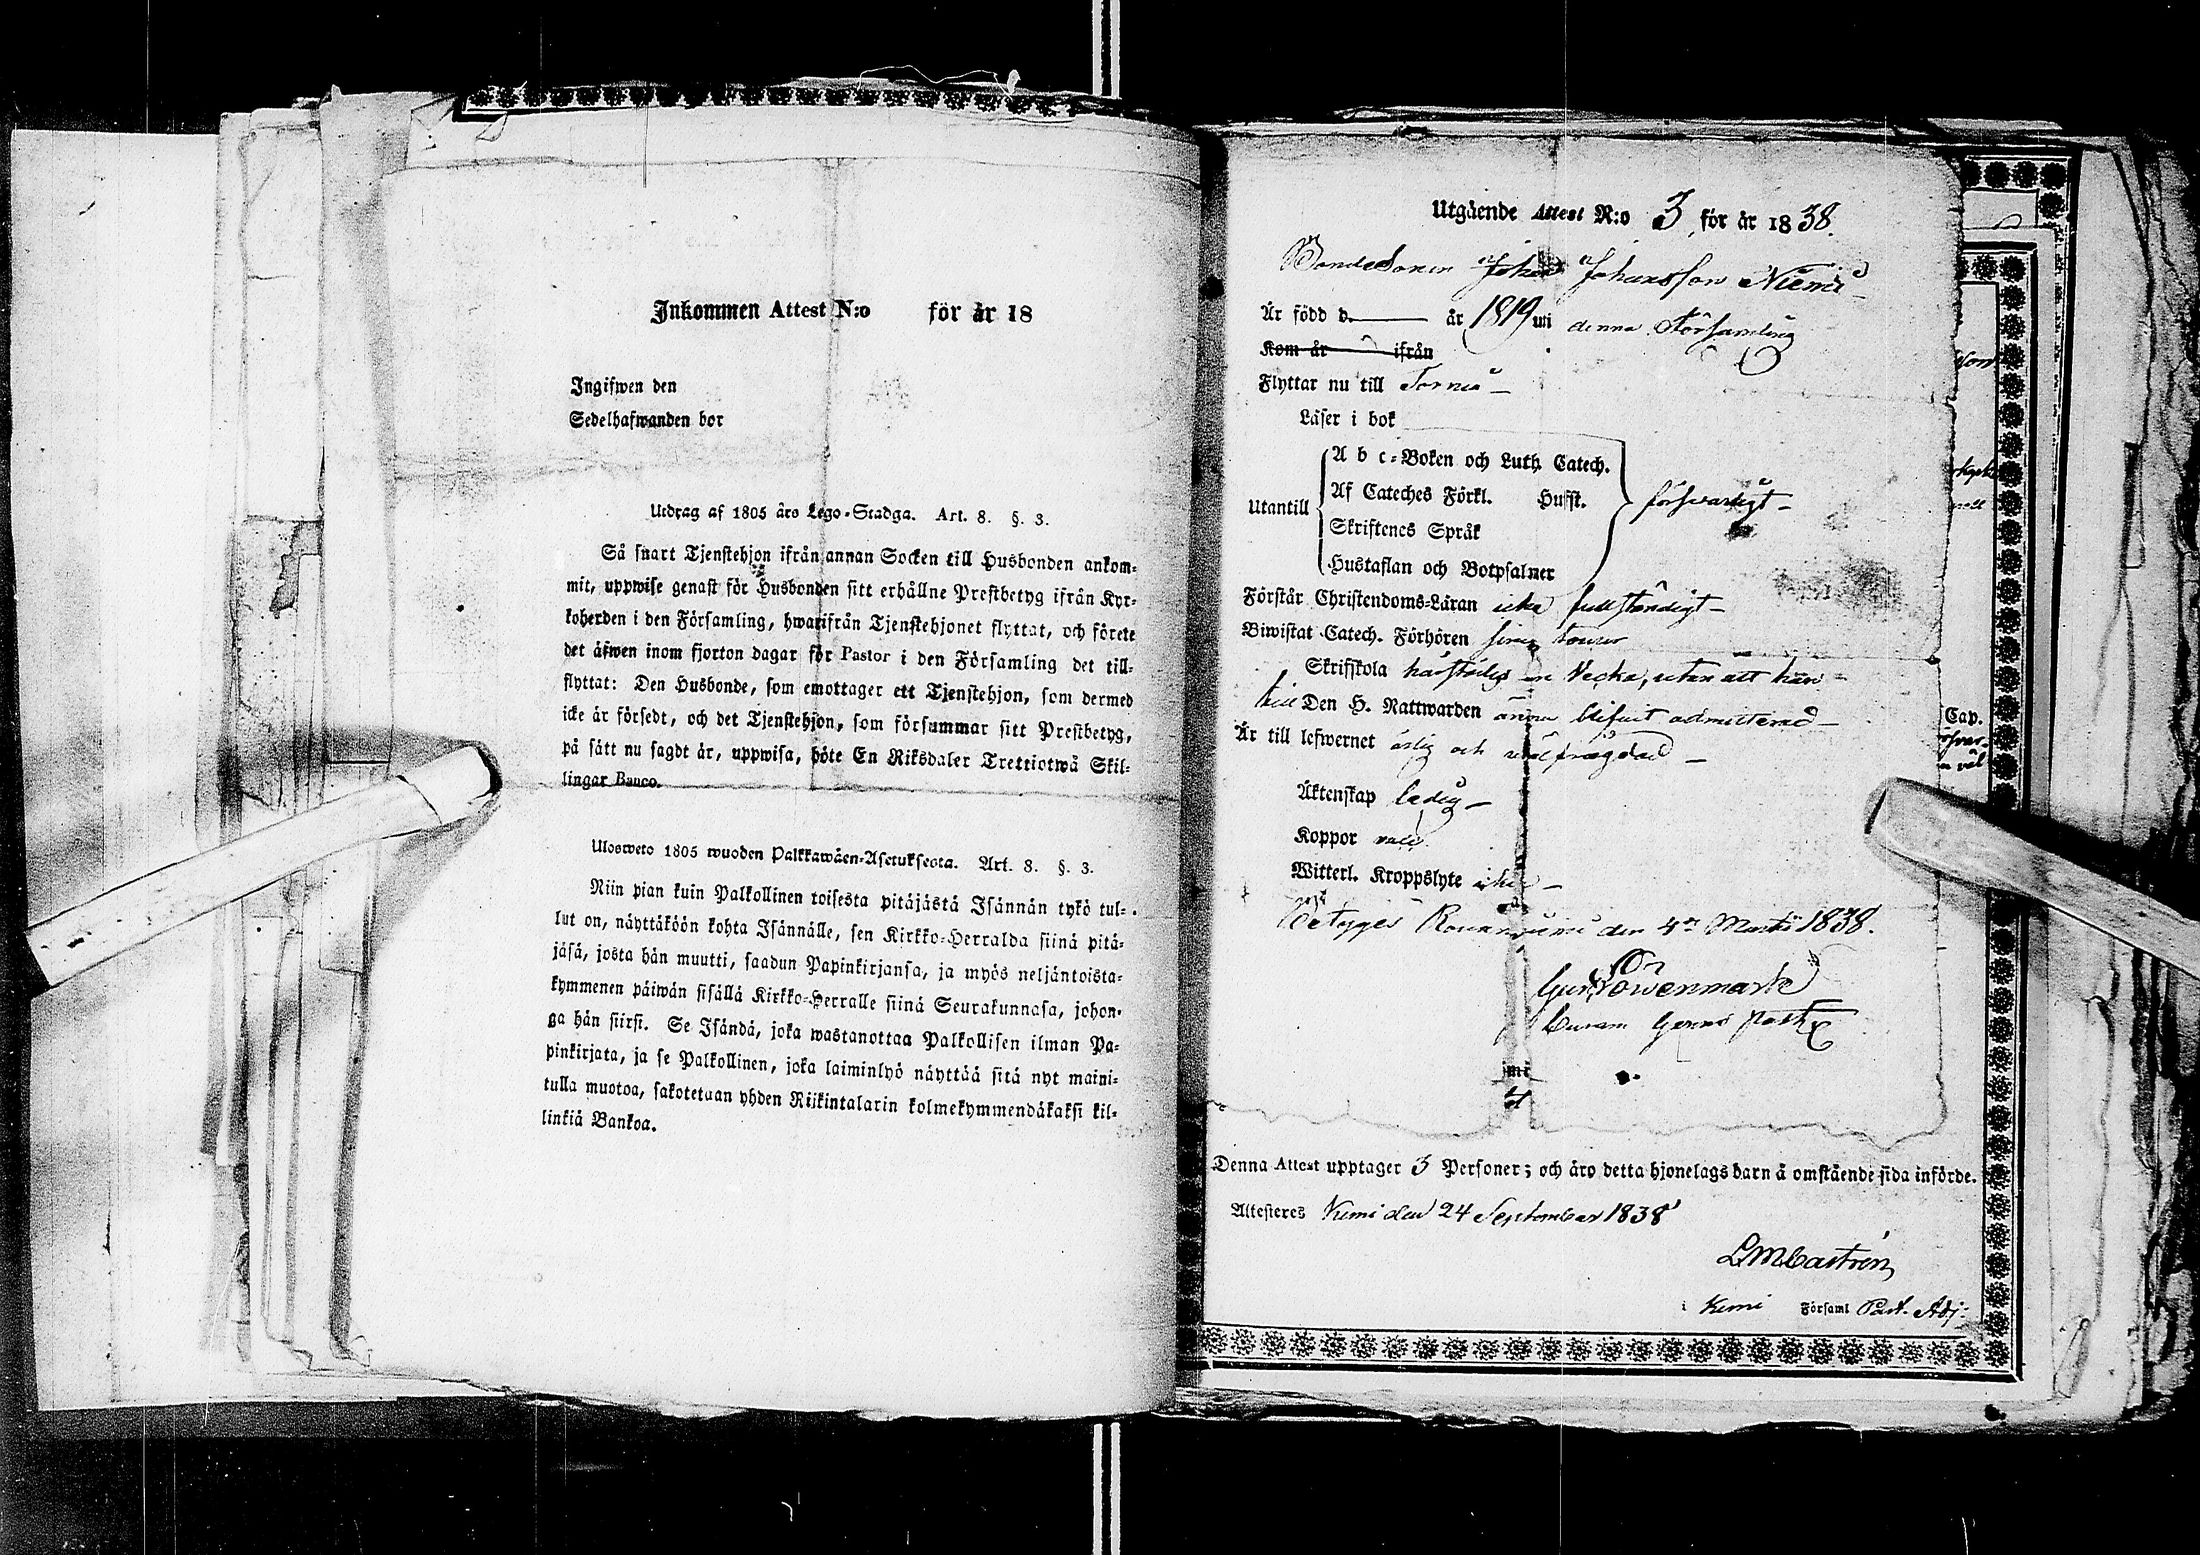 Inkommen Attest N:o för år 18
Ingifwen den
Sedelhafwanden bor
Utdrag af 1805 års Lego-Stadga. Art. 8. §. 3.
Så snart Tjenstehjon ifrån annan Socken till Husbonden ankom-
mit, uppwise genast för Husbonden sitt erhållne Prestbetyg ifrån Kyr-
koherden i den Församling, hwarifrån Tjenstehjonet flyttat, och förete
det äfwen inom fjorton dagar för Pastor i den Församling det till-
flyttat: Den Husbonde, som emottager ett Tjenstehjon, som dermed
icke är försedt, och det Tjenstehjon, som försummar sitt Prestbetyg,
på sätt nu sagdt är, uppwisa, böte En Riksdaler Trettiotwå Skil-
lingar Banco.
Ulosweto 1805 wuoden Palkkawäen-Asetuksesta. Art. 8. §. 3.
Niin pian kuin Palkollinen toisesta pitäjästä Isännän tykö tul-
lut on, näyttäköön kohta Isännälle, sen Kirkko-Herralda siinä pitä-
jäsä, josta hän muutti, saadun Papinkirjansa, ja myös neljäntoista-
kymmenen päiwän sisällä Kirkko-Herralle siinä Seurakunnasa, johon-
ga hän siirsi. Se Isändä, joka wastanottaa Palkollisen ilman Pa-
pinkirjata, ja se Palkollinen, joka laiminlyö näyttää sitä nyt maini-
tulla muotoa, sakotetaan yhden Riikintalarin kolmekymmendäkaksi kil-
linkiä Bankoa.
Utgående Attest N:o 3 för år 1838.
Bondesonen Johan Johansson Niemi
Är född d. år 1819 uti denna Församling
Kom år ifrån
Flyttar nu till Torneå
Läser i bok
A b c-Boken och Luth. Catech.
Af Cateches Förkl. Husst.
Utantill försvarligt
Skriftenes Språk
Hustaflan och Botpsalmer
Förstår Christendoms-Läran icke fullständigt
Biwistat Catech. Förhören sina
Skriftskola härstädes en Vecka, utan att hän-
till Den H. Nattwarden ännu blifvit admitterad
Är till lefwernet ärlig och välfrägdad
Äktenskap ledig
Koppor
Witterl. Kroppslyte icke
Betygas Rovaniemi den 4de Martii 1838.
Löwenmark
Denna Attest upptager 3 Personer; och äro detta hjonelags barn å omstående sida införde.
Attesteres Kemi den 24 September 1838
LMCastrén
i Kemi Församl Past. Adj:
Cap.